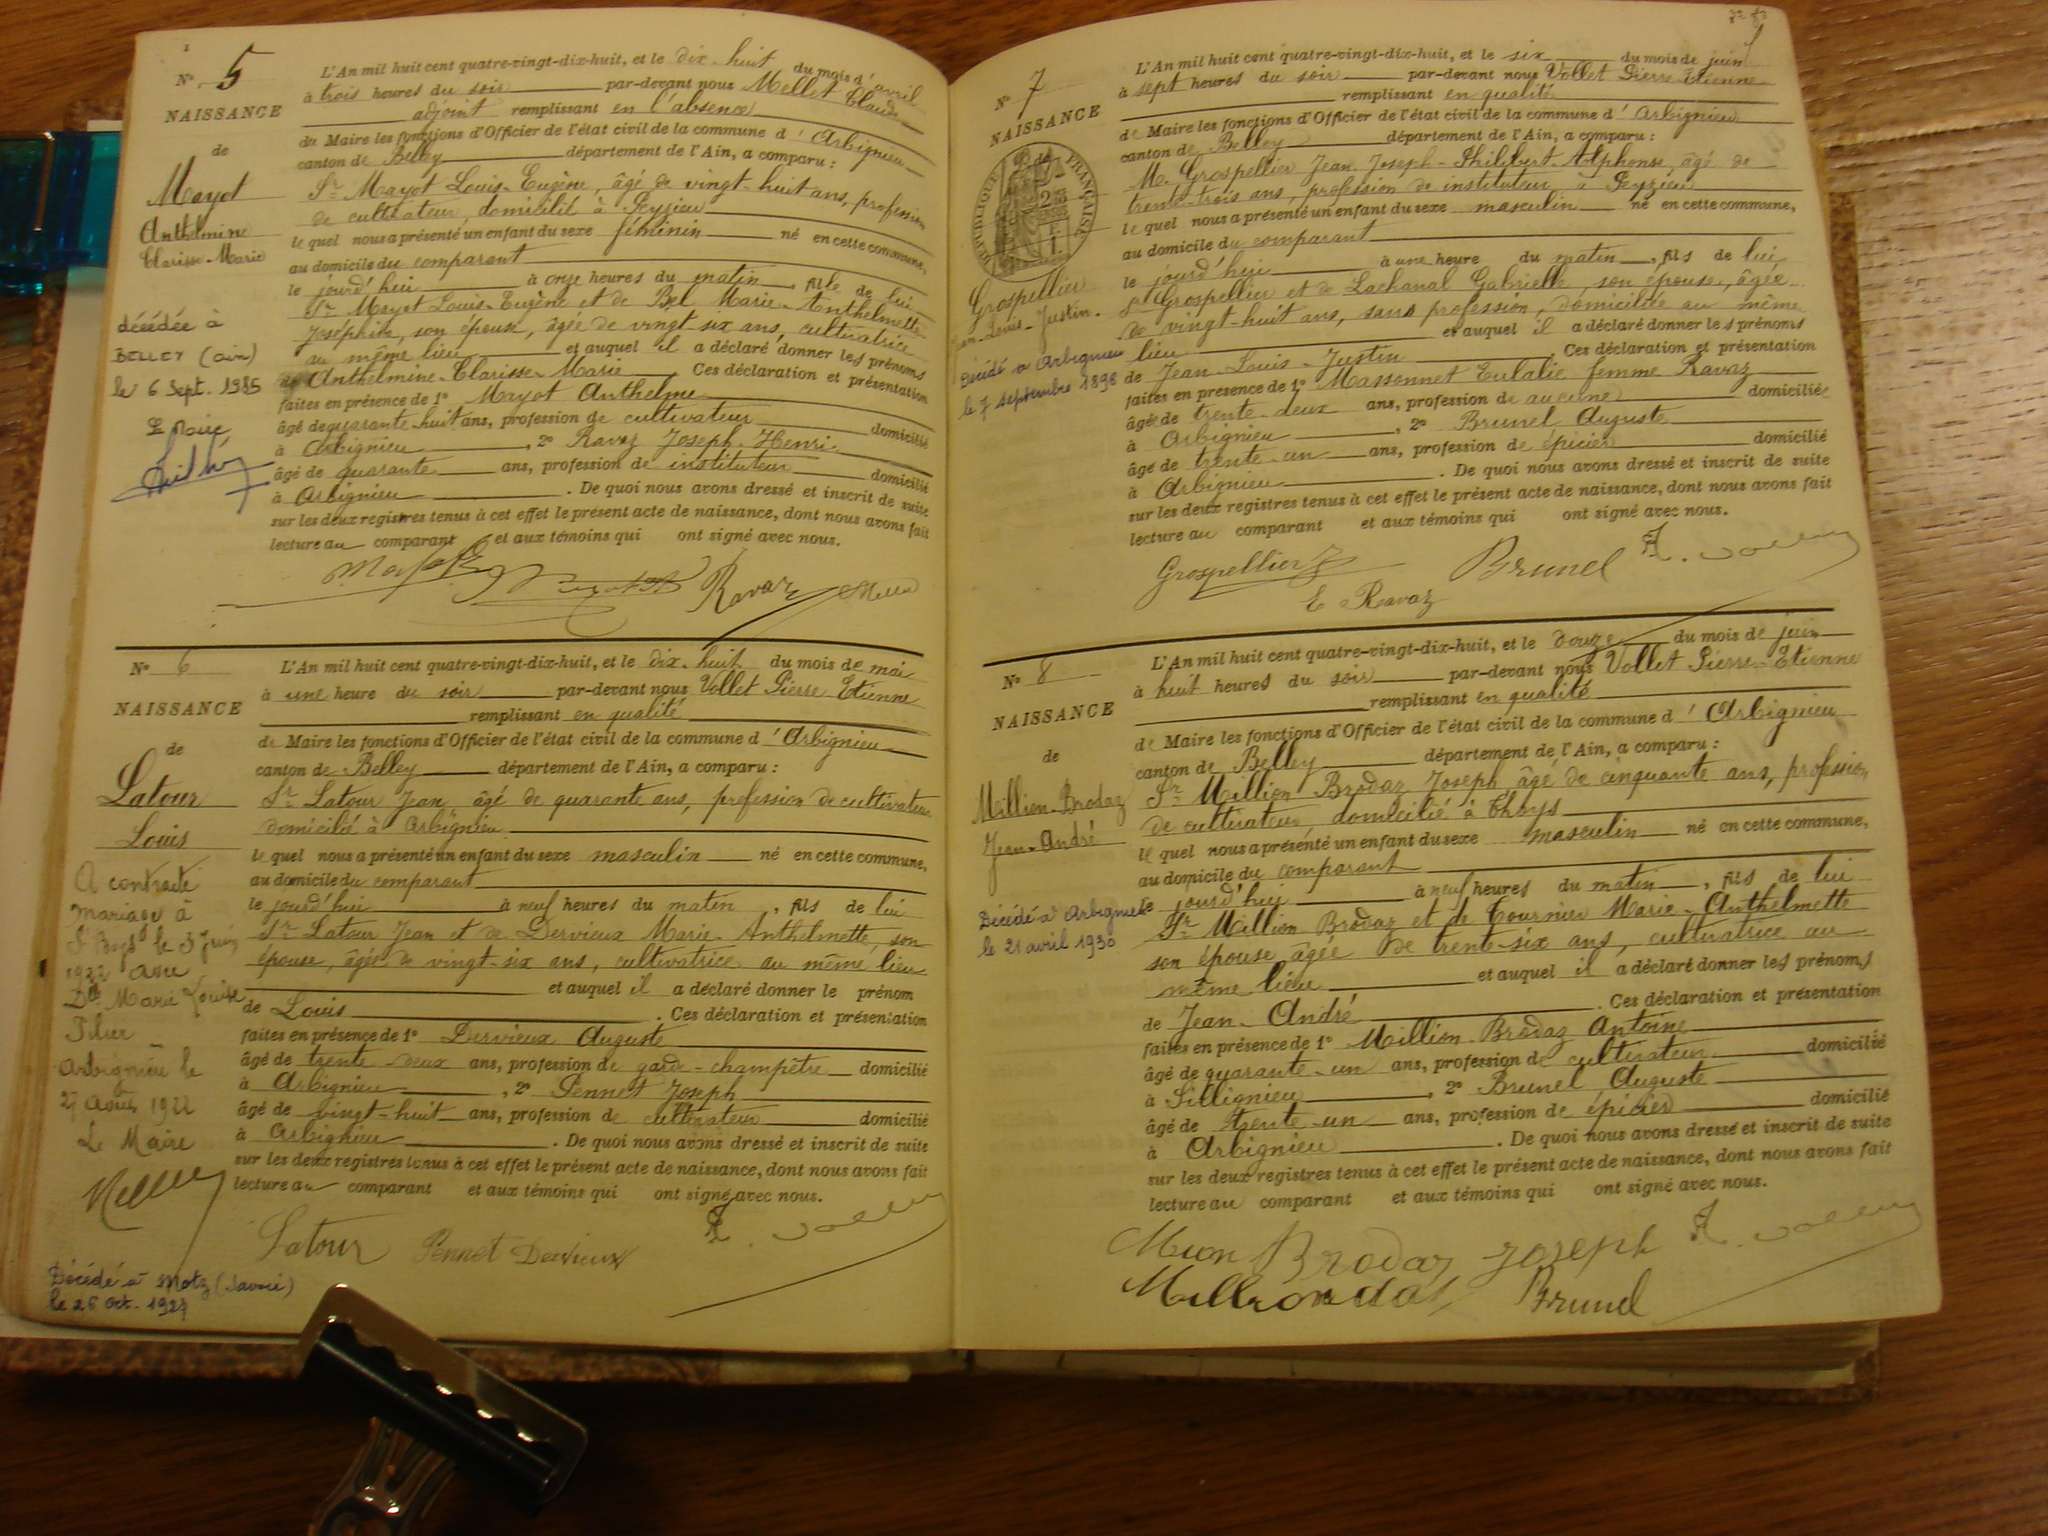 N° 5
NAISSANCE
de
Mayot
Anthelmine
Clarisse-Marie
décédée à
BELLEY (ain)
le 6 Sept. 1985
Le Maire
L'An mil huit cent quatre-vingt-dix-huit, et le dix-huit du mois d'avril
à trois heures du soir par-devant nous Mellet Claude
adjoint remplissant en l'absence
du Maire les fonctions d'Officier de l'état civil de la commune d'Arbignieu
canton de Belley département de l'Ain, a comparu :
Sr Mayot Louis-Eugène, âgé de vingt-huit ans, profession
de cultivateur, domicilié à Peyzieu
le quel nous a présenté un enfant du sexe féminin né en cette commune,
au domicile du comparant
le jourd'hui à onze heures du matin, fille de lui
Sr Mayot Louis-Eugène et de Bel Marie-Anthelmette
Joséphine, son épouse, âgée de vingt-six ans, cultivatrice
au même lieu et auquel il a déclaré donner les prénoms
de Anthelmine-Clarisse-Marie. Ces déclaration et présentation
faites en présence de 1° Mayot Anthelme
âgé de quarante-huit ans, profession de cultivateur domicilié
à Arbignieu, 2° Ravaz Joseph-Henri
âgé de quarante ans, profession de instituteur domicilié
à Arbignieu. De quoi nous avons dressé et inscrit de suite
sur les deux registres tenus à cet effet le présent acte de naissance, dont nous avons fait
lecture au comparant et aux témoins qui ont signé avec nous.
Ravaz
N° 6
NAISSANCE
de
Latour
Louis
A contracté
mariage à
le 3 Juin
1922 avec
Dlle Marie Louise
Arbignieu le
27 Août 1922
Le Maire
Décédé à Motz (Savoie)
le 26 Oct. 1927
L'An mil huit cent quatre-vingt-dix-huit, et le dix-huit du mois de mai
à une heure du soir par-devant nous Vollet Pierre Etienne
remplissant en qualité
de Maire les fonctions d'Officier de l'état civil de la commune d'Arbignieu
canton de Belley département de l'Ain, a comparu :
Sr Latour Jean, âgé de quarante ans, profession de cultivateur
domicilié à Arbignieu
le quel nous a présenté un enfant du sexe masculin né en cette commune,
au domicile du comparant
le jourd'hui à neuf heures du matin, fils de lui
Sr Latour Jean et de Dervieux Marie-Anthelmette, son
épouse, âgée de vingt-six ans, cultivatrice au même lieu
et auquel il a déclaré donner le prénom
de Louis. Ces déclaration et présentation
faites en présence de 1° Dervieux Auguste
âgé de trente-deux ans, profession de garde-champêtre domicilié
à Arbignieu, 2° Pennet Joseph
âgé de vingt-huit ans, profession de cultivateur domicilié
à Arbignieu. De quoi nous avons dressé et inscrit de suite
sur les deux registres tenus à cet effet le présent acte de naissance, dont nous avons fait
lecture au comparant et aux témoins qui ont signé avec nous.
Latour Pennet Dervieux
N° 7
NAISSANCE
de
RÉPUBLIQUE FRANÇAISE
Grospellier
Jean-Louis-Justin
Décédé à Arbignieu
le 7 septembre 1898
L'An mil huit cent quatre-vingt-dix-huit, et le six du mois de juin
à sept heures du soir par-devant nous Vollet Pierre Etienne
remplissant en qualité
de Maire les fonctions d'Officier de l'état civil de la commune d'Arbignieu
canton de Belley département de l'Ain, a comparu :
M. Grospellier Jean-Joseph-Philibert-Alphonse, âgé de
trente-trois ans, profession de instituteur à Peyzieu
le quel nous a présenté un enfant du sexe masculin né en cette commune,
au domicile du comparant
le jourd'hui à une heure du matin, fils de lui
Sr Grospellier et de Lachanal Gabrielle, son épouse, âgée
de vingt-huit ans, sans profession, domiciliée au même
lieu et auquel il a déclaré donner les prénoms
de Jean-Louis-Justin Ces déclaration et présentation
faites en présence de 1° Massonnet Eulalie femme Ravaz
âgée de trente-deux ans, profession de aucune domiciliée
à Arbignieu, 2° Brunel Auguste
âgé de trente-un ans, profession de épicier domicilié
à Arbignieu. De quoi nous avons dressé et inscrit de suite
sur les deux registres tenus à cet effet le présent acte de naissance, dont nous avons fait
lecture au comparant et aux témoins qui ont signé avec nous.
Grospellier Brunel
E Ravaz
N° 8
NAISSANCE
de
Million-Brodaz
Jean-André
Décédé à Arbignieu
le 21 avril 1930
L'An mil huit cent quatre-vingt-dix-huit, et le douze du mois de juin
à huit heures du soir par-devant nous Vollet Pierre-Etienne
remplissant en qualité
de Maire les fonctions d'Officier de l'état civil de la commune d'Arbignieu
canton de Belley département de l'Ain, a comparu :
Sr Million Brodaz Joseph, âgé de cinquante ans, profession
de cultivateur, domicilié à Thoys
le quel nous a présenté un enfant du sexe masculin né en cette commune,
au domicile du comparant
le jourd'hui à neuf heures du matin, fils de lui
Sr Million Brodaz et de Tournier Marie-Anthelmette
son épouse âgée de trente-six ans, cultivatrice au
même lieu et auquel il a déclaré donner les prénoms
de Jean-André. Ces déclaration et présentation
faites en présence de 1° Million-Brodaz Antoine
âgé de quarante-un ans, profession de cultivateur domicilié
à Sillignieu, 2° Brunel Auguste
âgé de trente-un ans, profession de épicier domicilié
à Arbignieu. De quoi nous avons dressé et inscrit de suite
sur les deux registres tenus à cet effet le présent acte de naissance, dont nous avons fait
lecture au comparant et aux témoins qui ont signé avec nous.
Brodaz Joseph
Brunel